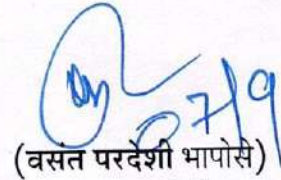 7/9
(वसंत परदेशी भापोसे)